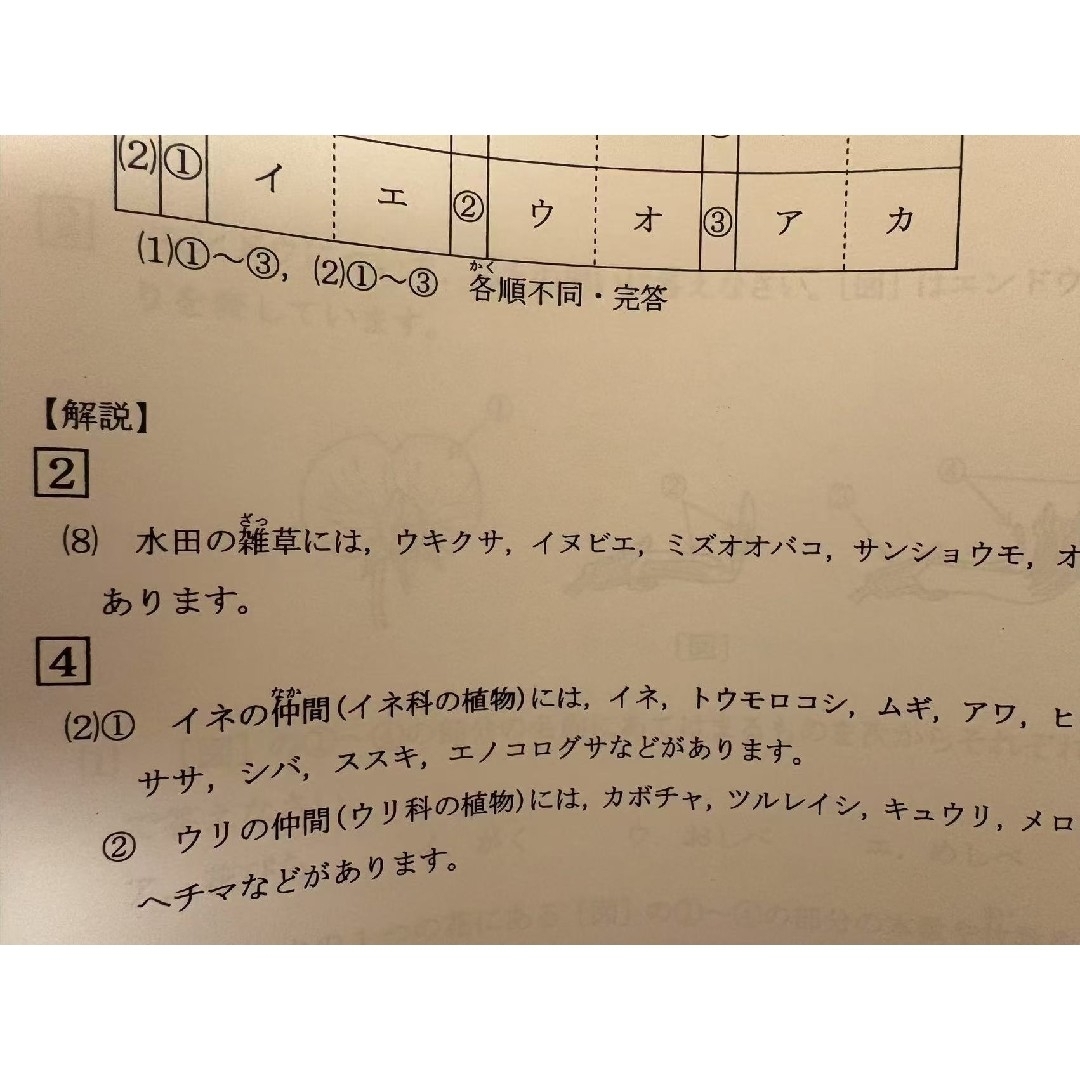 (2) ① イ エ ② ウ オ ③ ア カ
(1)①～③, (2)①～③ 各順不同・完答
【解説】
2
(8) 水田の雑草には, ウキクサ, イヌビエ, ミズオオバコ, サンショウモ, オ
あります。
4
(2)① イネの仲間(イネ科の植物)には, イネ, トウモロコシ, ムギ, アワ, ヒ
ササ, シバ, ススキ, エノコログサなどがあります。
② ウリの仲間(ウリ科の植物)には, カボチャ, ツルレイシ, キュウリ, メロ
ヘチマなどがあります。